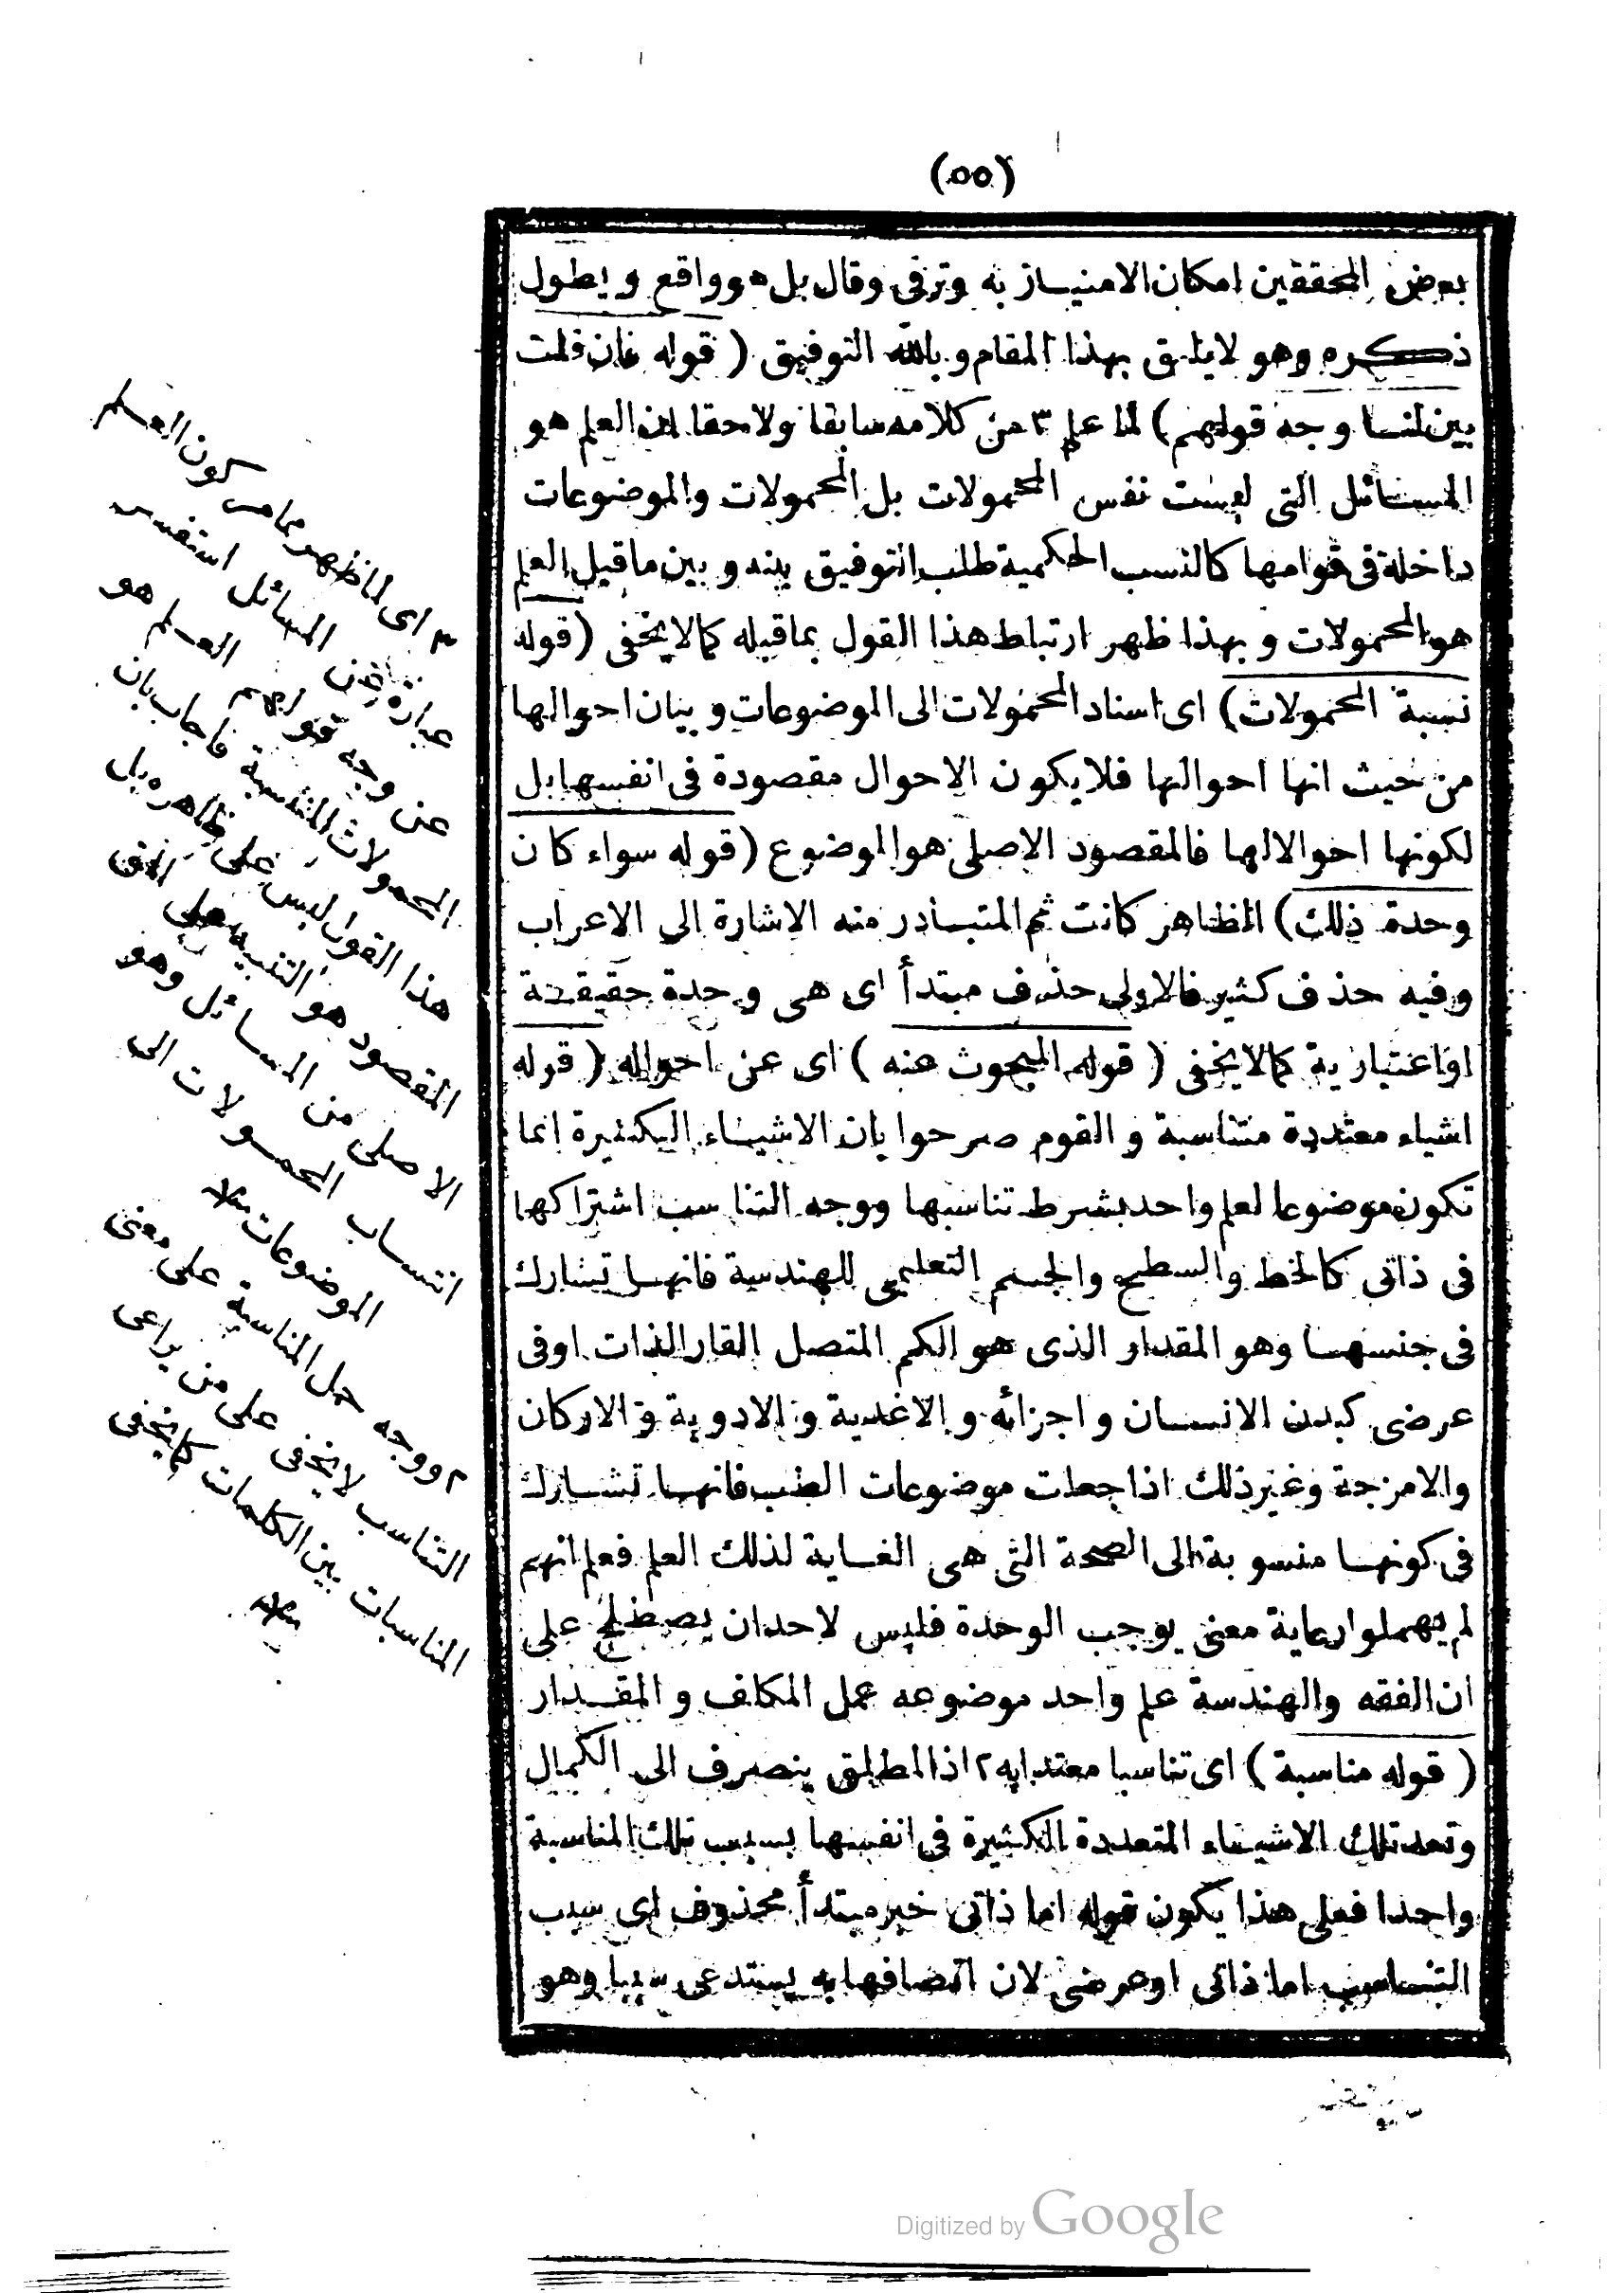 (٥٥)
بعض المحققين امكان الامتياز به وترقى وقال بل هو واقع ويطول
ذكره وهو لا يليق بهذا المقام وبالله التوفيق (قوله فان قلت
بين لنا وجه قولهم) لما علم ٣ من كلامه سابقا ولاحقا ان العلم هو
المسائل التى ليست نفس المحمولات بل المحمولات والموضوعات
داخلة فى قوامها كالنسب الحكمية طلب التوفيق بينه و بين ماقيل العلم
هو المحمولات و بهذا ظهر ارتباط هذا القول بماقبله كما لايخفى (قوله
نسبة المحمولات) اى اسناد المحمولات الى الموضوعات و بيان احوالها
من حيث انها احوالها فلا يكون الاحوال مقصودة فى انفسها بل
لكونها احوالا لها فالمقصود الاصلى هو الموضوع (قوله سواء كان
وحدة ذلك) الظاهر كانت ثم المتبادر منه الاشارة الى الاعراب
وفيه حذف كثير فالاولى حذف مبتدأ اى هى وحدة حقيقية
او اعتبارية كما لايخفى (قوله المبحوث عنه) اى عن احواله (قوله
اشياء معتددة متناسبة و القوم صرحوا بان الاشياء الكثيرة انما
تكون موضوعا لعلم واحد بشرط تناسبها ووجه التناسب اشتراكها
فى ذاتى كالخط والسطح والجسم التعليمى للهندسة فانها تشارك
فى جنسها وهو المقدار الذى هو الكم المتصل القار الذات اوفى
عرضى كبدن الانسان و اجزائه و الاغدية و الادوية و الاركان
والامزجة وغير ذلك اذا جعلت موضوعات الطب فانها تشارك
فى كونها منسوبة الى الصحة التى هى الغاية لذلك العلم فعلم انهم
لم يهملوا رعاية معنى يوجب الوحدة فليس لاحد ان يصطلح على
ان الفقه والهندسة علم واحد موضوعه عمل المكلف و المقدار
(قوله مناسبة) اى تناسبا معتدابه ٢ اذ المطلق ينصرف الى الكمال
وتعد تلك الاشياء المتعددة الكثيرة فى انفسها بسبب تلك المناسبة
واحدا فعلى هذا يكون قوله اما ذاتى خبر مبتدأ محذوف اى سبب
التناسب اما ذاتى او عرضى لان اتصافها به يستدعى سببا وهو
٣ اى لما ظهر مامر كون العلم
عبارة عن المسائل استفسر
عن وجه قولهم العلم هو
المحمولات المنتسبة فاجاب بان
هذا القول ليس على ظاهره بل
المقصود هو التنبيه على
الاصلى من المسائل وهو
انتساب المحمولات الى
الموضوعات منه
٢ ووجه حمل المناسبة على معنى
التناسب لا يخفى على من يراعى
المناسبات بين الكلمات كما يخفى
منه
Digitized by Google